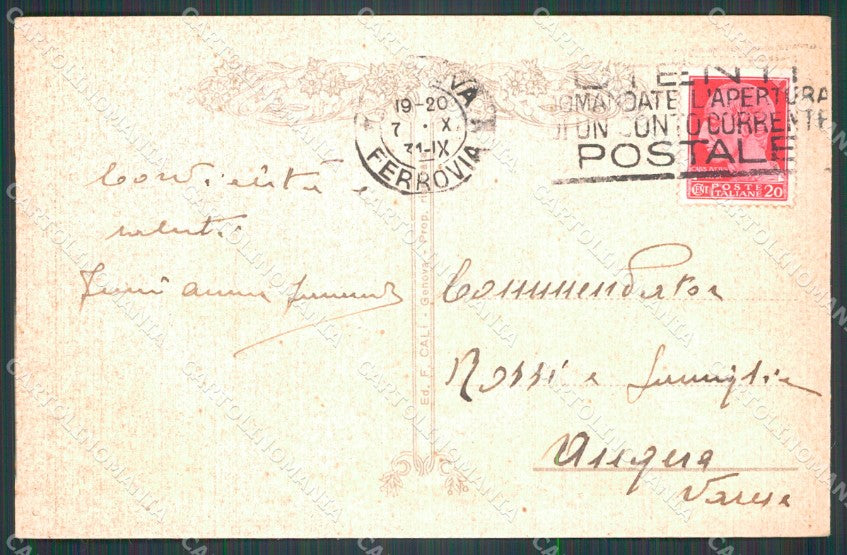 VA
19-20
7 . X
31-IX
FERROVIA
UTENTI
OMANDATE L'APERTURA
DI UN CONTO CORRENTE
POSTALE
CENT POSTE
ITALIANE 20
Cordialità e
saluti
Ed. F. CALÌ - Genova - Prop.
Commendator
Rossi e famiglia
Varese
CARTOLINOMANIA